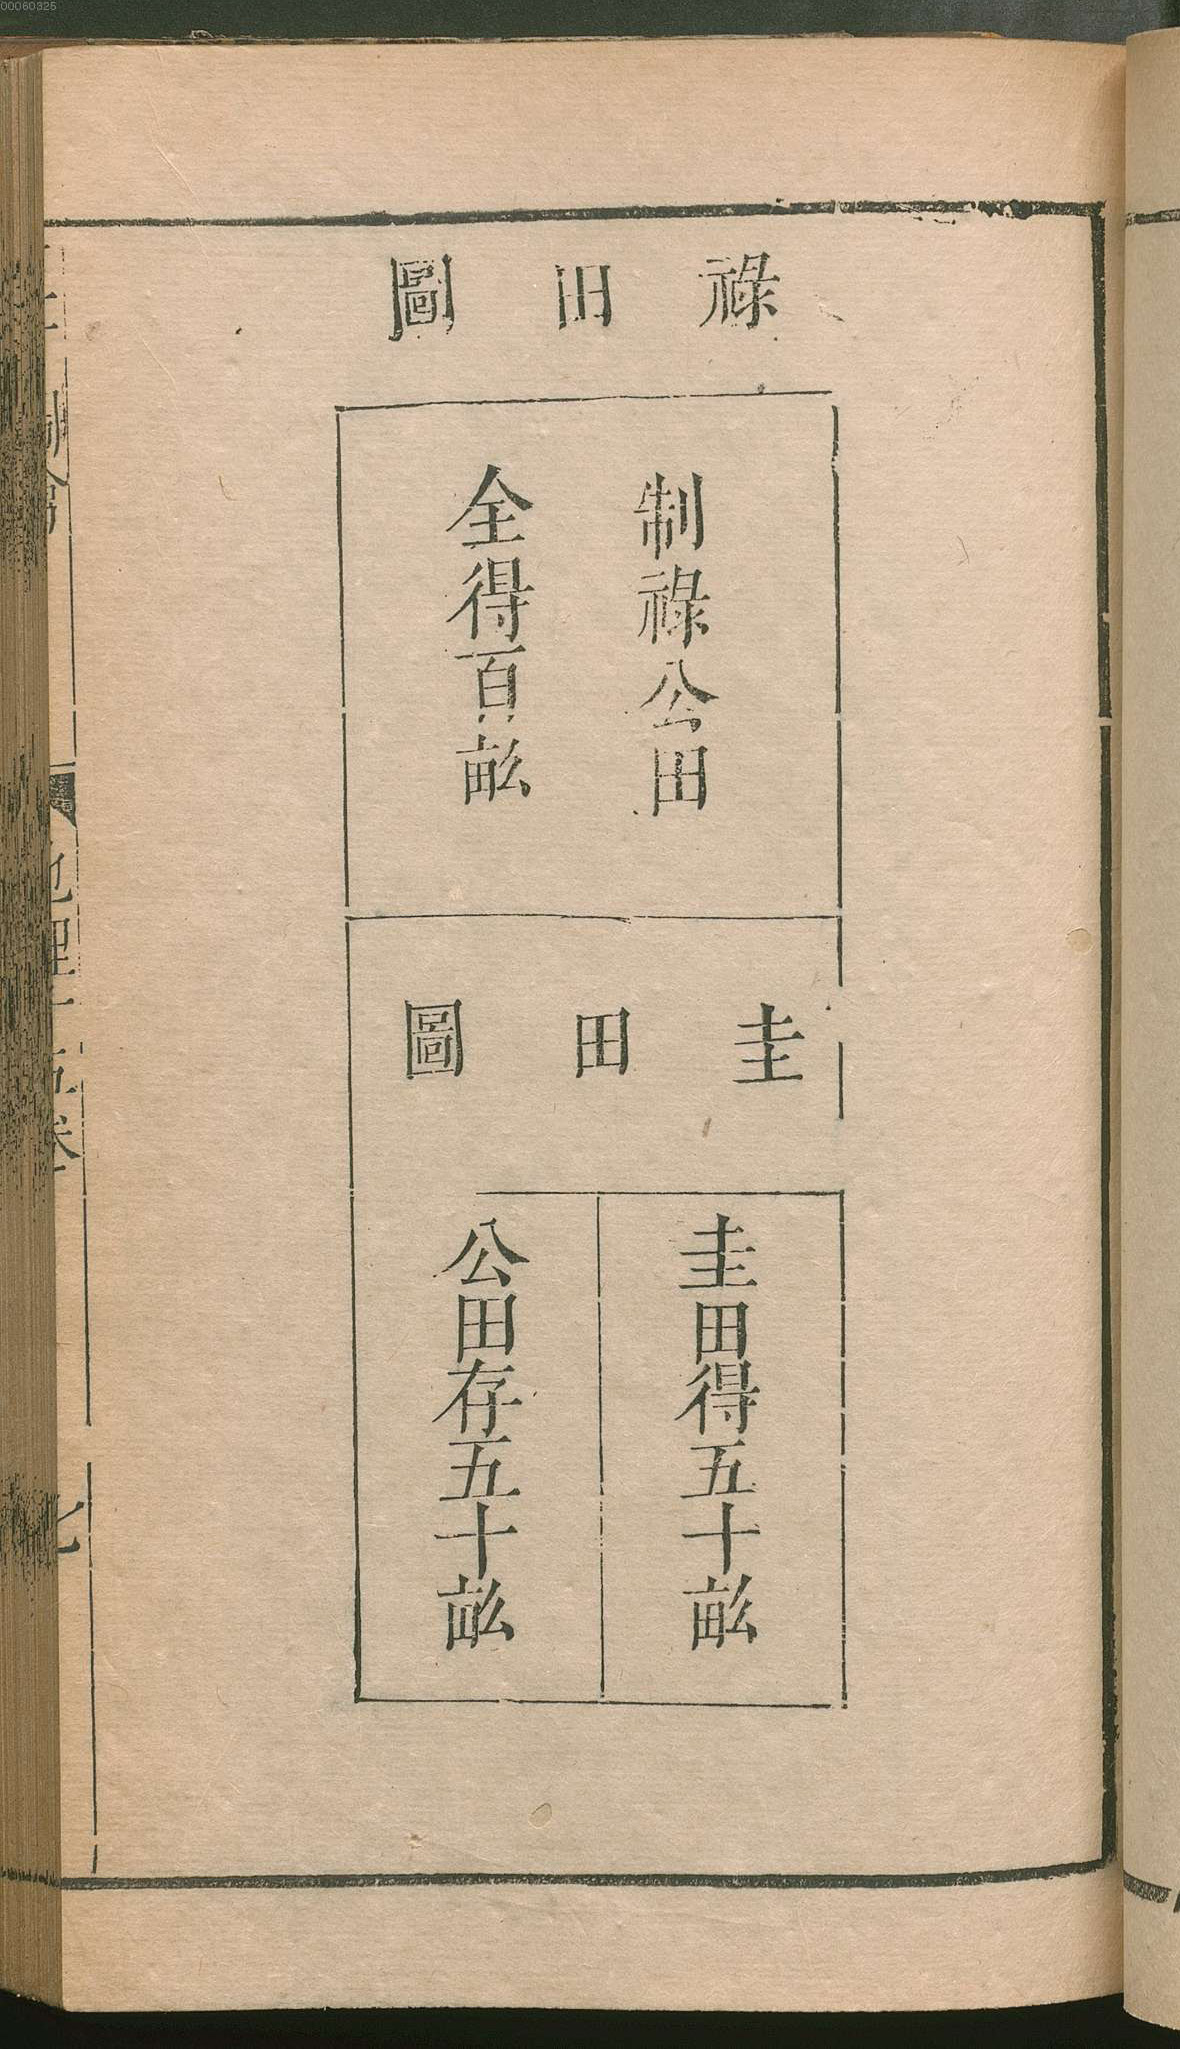 00060325
祿田圖
制祿公田
全得百畝
圭田圖
圭田得五十畝
公田存五十畝